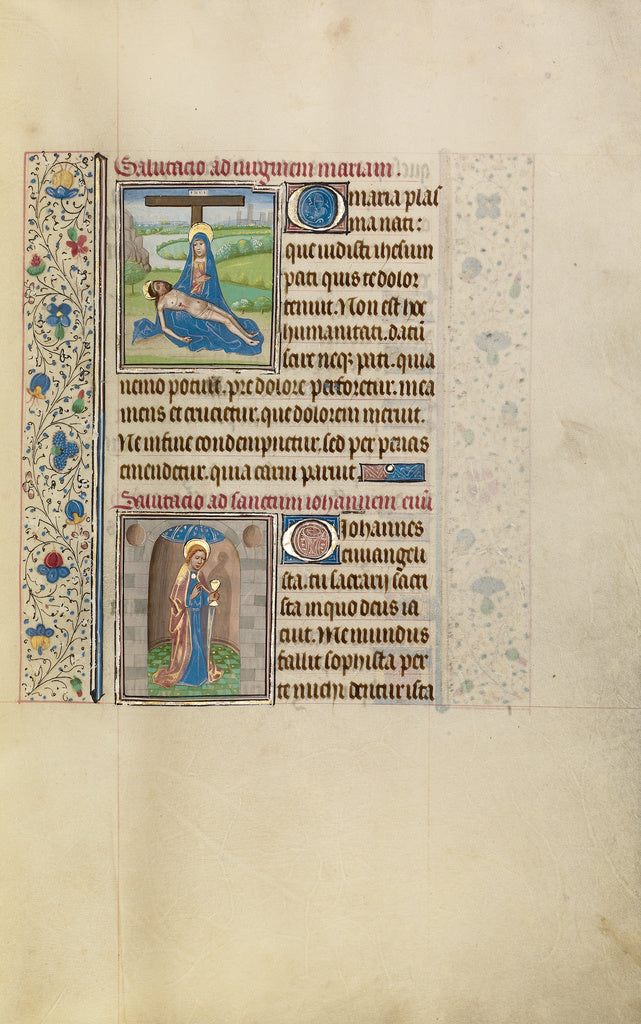 Salutacio ad virginem mariam.
O maria plas
ma nati:
que vidisti ihesum
pati quis te dolor
tenuit. Non est hoc
humanitati. datū
scire neqꝫ pati. quia
nemo potuit. pre dolore perforetur. mea
mens et crucietur. que dolorem meruit.
Ne in fine condempnetur. sed per penas
emendetur. quia carni paruit.
Salutacio ad sanctum iohannem euū
O Iohannes
euuangeli
sta. tu sacrarij sacri
sta in quo deus ia
cuit. Me mundus
fallit sophista per
te michi dentur ista